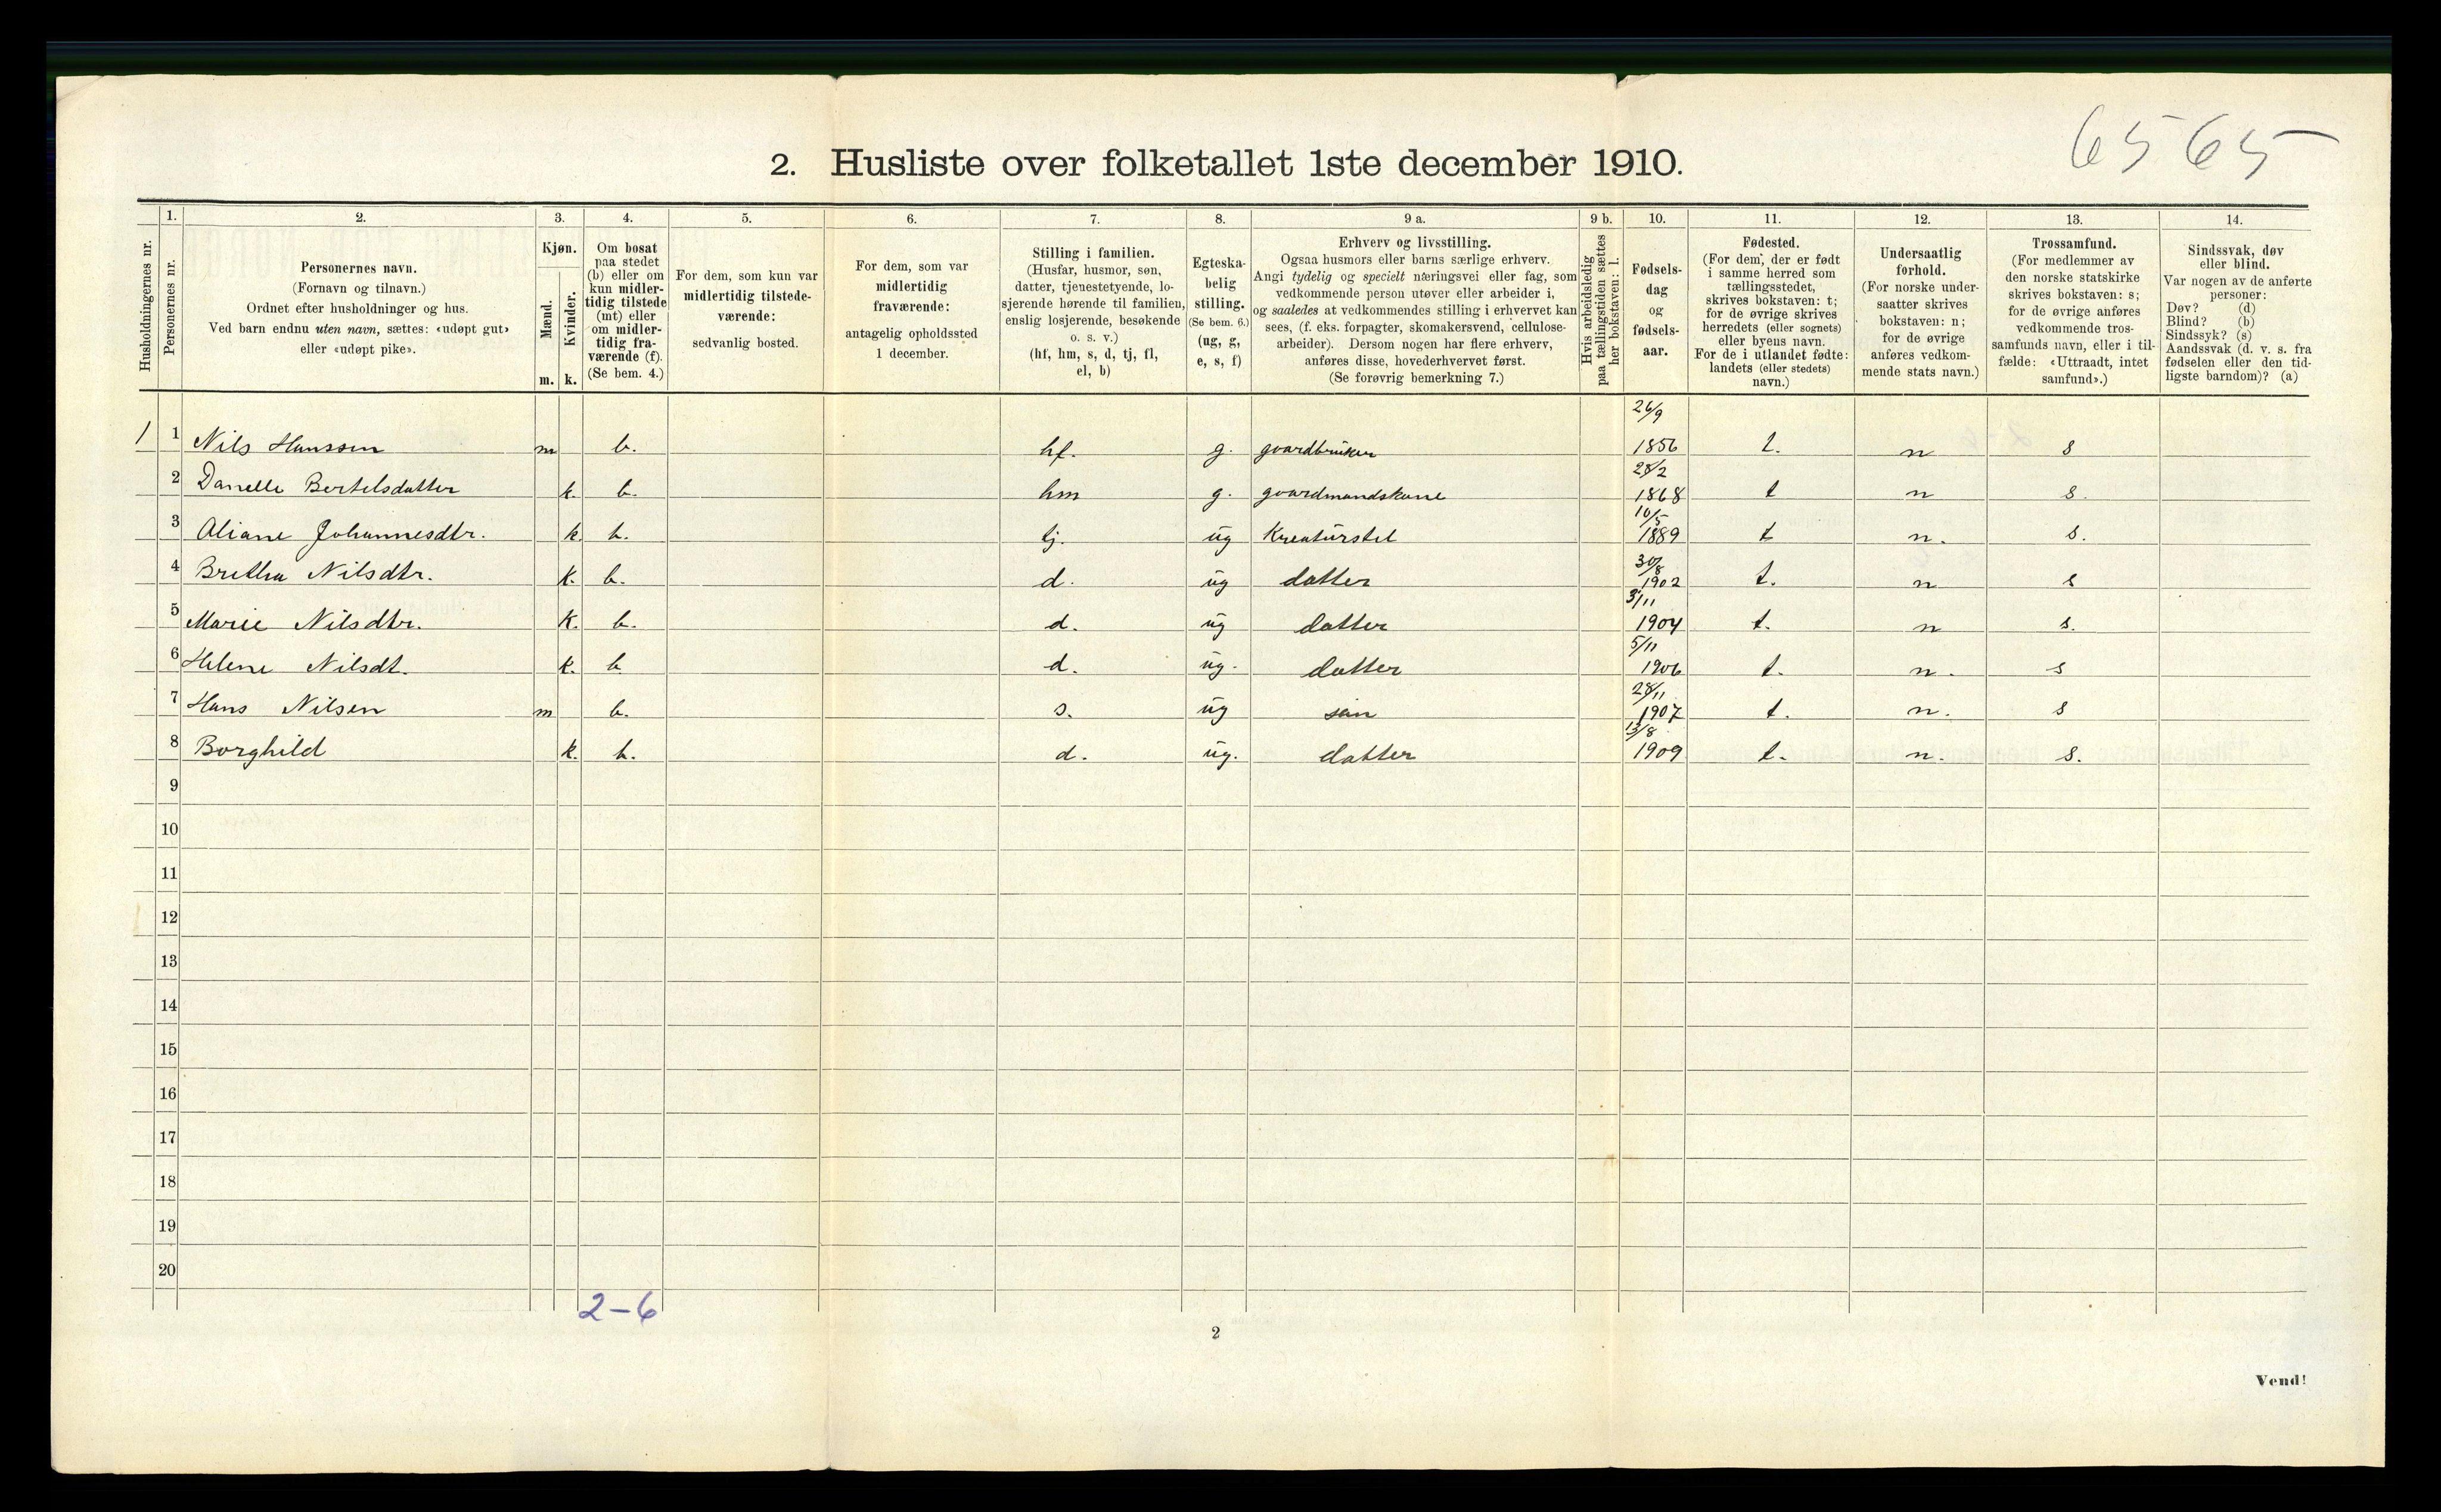 6565
2. Husliste over folketallet 1ste december 1910.
Husholdningernes nr.
1.
Personernes nr.
2.
Personernes navn.
(Fornavn og tilnavn.)
Ordnet efter husholdninger og hus.
Ved barn endnu uten navn, sættes: «udøpt gut»
eller «udøpt pike».
3.
Kjøn.
Mænd.
Kvinder.
m. k.
4.
Om bosat
paa stedet
(b) eller om
kun midler-
tidig tilstede
(mt) eller
om midler-
tidig fra-
værende (f).
(Se bem. 4.)
5.
For dem, som kun var
midlertidig tilstede-
værende:
sedvanlig bosted.
6.
For dem, som var
midlertidig
fraværende:
antagelig opholdssted
1 december.
7.
Stilling i familien.
(Husfar, husmor, søn,
datter, tjenestetyende, lo-
sjerende hørende til familien,
enslig losjerende, besøkende
o. s. v.)
(hf, hm, s, d, tj, fl,
el, b)
8.
Egteska-
belig
stilling.
(Se bem. 6.)
(ug, g,
e, s, f)
9 a.
Erhverv og livsstilling.
Ogsaa husmors eller barns særlige erhverv.
Angi tydelig og specielt næringsvei eller fag, som
vedkommende person utøver eller arbeider i,
og saaledes at vedkommendes stilling i erhvervet kan
sees, (f. eks. forpagter, skomakersvend, cellulose-
arbeider). Dersom nogen har flere erhverv,
anføres disse, hovederhvervet først.
(Se forøvrig bemerkning 7.)
9 b.
Hvis arbeidsledig
paa tællingstiden sættes
her bokstaven: l.
10.
Fødsels-
dag
og
fødsels-
aar.
11.
Fødested.
(For dem, der er født
i samme herred som
tællingsstedet,
skrives bokstaven: t;
for de øvrige skrives
herredets (eller sognets)
eller byens navn.
For de i utlandet fødte:
landets (eller stedets)
navn.)
12.
Undersaatlig
forhold.
(For norske under-
saatter skrives
bokstaven: n;
for de øvrige
anføres vedkom-
mende stats navn.)
13.
Trossamfund.
(For medlemmer av
den norske statskirke
skrives bokstaven: s;
for de øvrige anføres
vedkommende tros-
samfunds navn, eller i til-
fælde: «Uttraadt, intet
samfund».)
14.
Sindssvak, døv
eller blind.
Var nogen av de anførte
personer:
Døv? (d)
Blind? (b)
Sindssyk? (s)
Aandssvak (d. v. s. fra
fødselen eller den tid-
ligste barndom)? (a)
1 1 Nils Hanssen m b. hf. g. gaardbruker 26/9 1856 t. n s
2 Danelle Bertelsdatter k. b. hm g. gaardmandskone 28/2 1868 t n s.
3 Oliane Johannesdtr. k. b. tj. ug Kreaturstel 10/5 1889 t n. s.
4 Bretha Nilsdtr. k. b. d. ug datter 30/8 1902 t. n s
5 Marie Nilsdtr. k. b. d. ug datter 3/11 1904 t. n s.
6 Helene Nilsdt. k. b d. ug. datter 5/11 1906 t. n. s
7 Hans Nilsen m b. s. ug søn 28/11 1907 t. n. s
8 Borghild k. b. d. ug. datter 13/8 1909 t. n. s.
9
10
11
12
13
14
15
16
17
18
19
20
2-6
2
Vend!